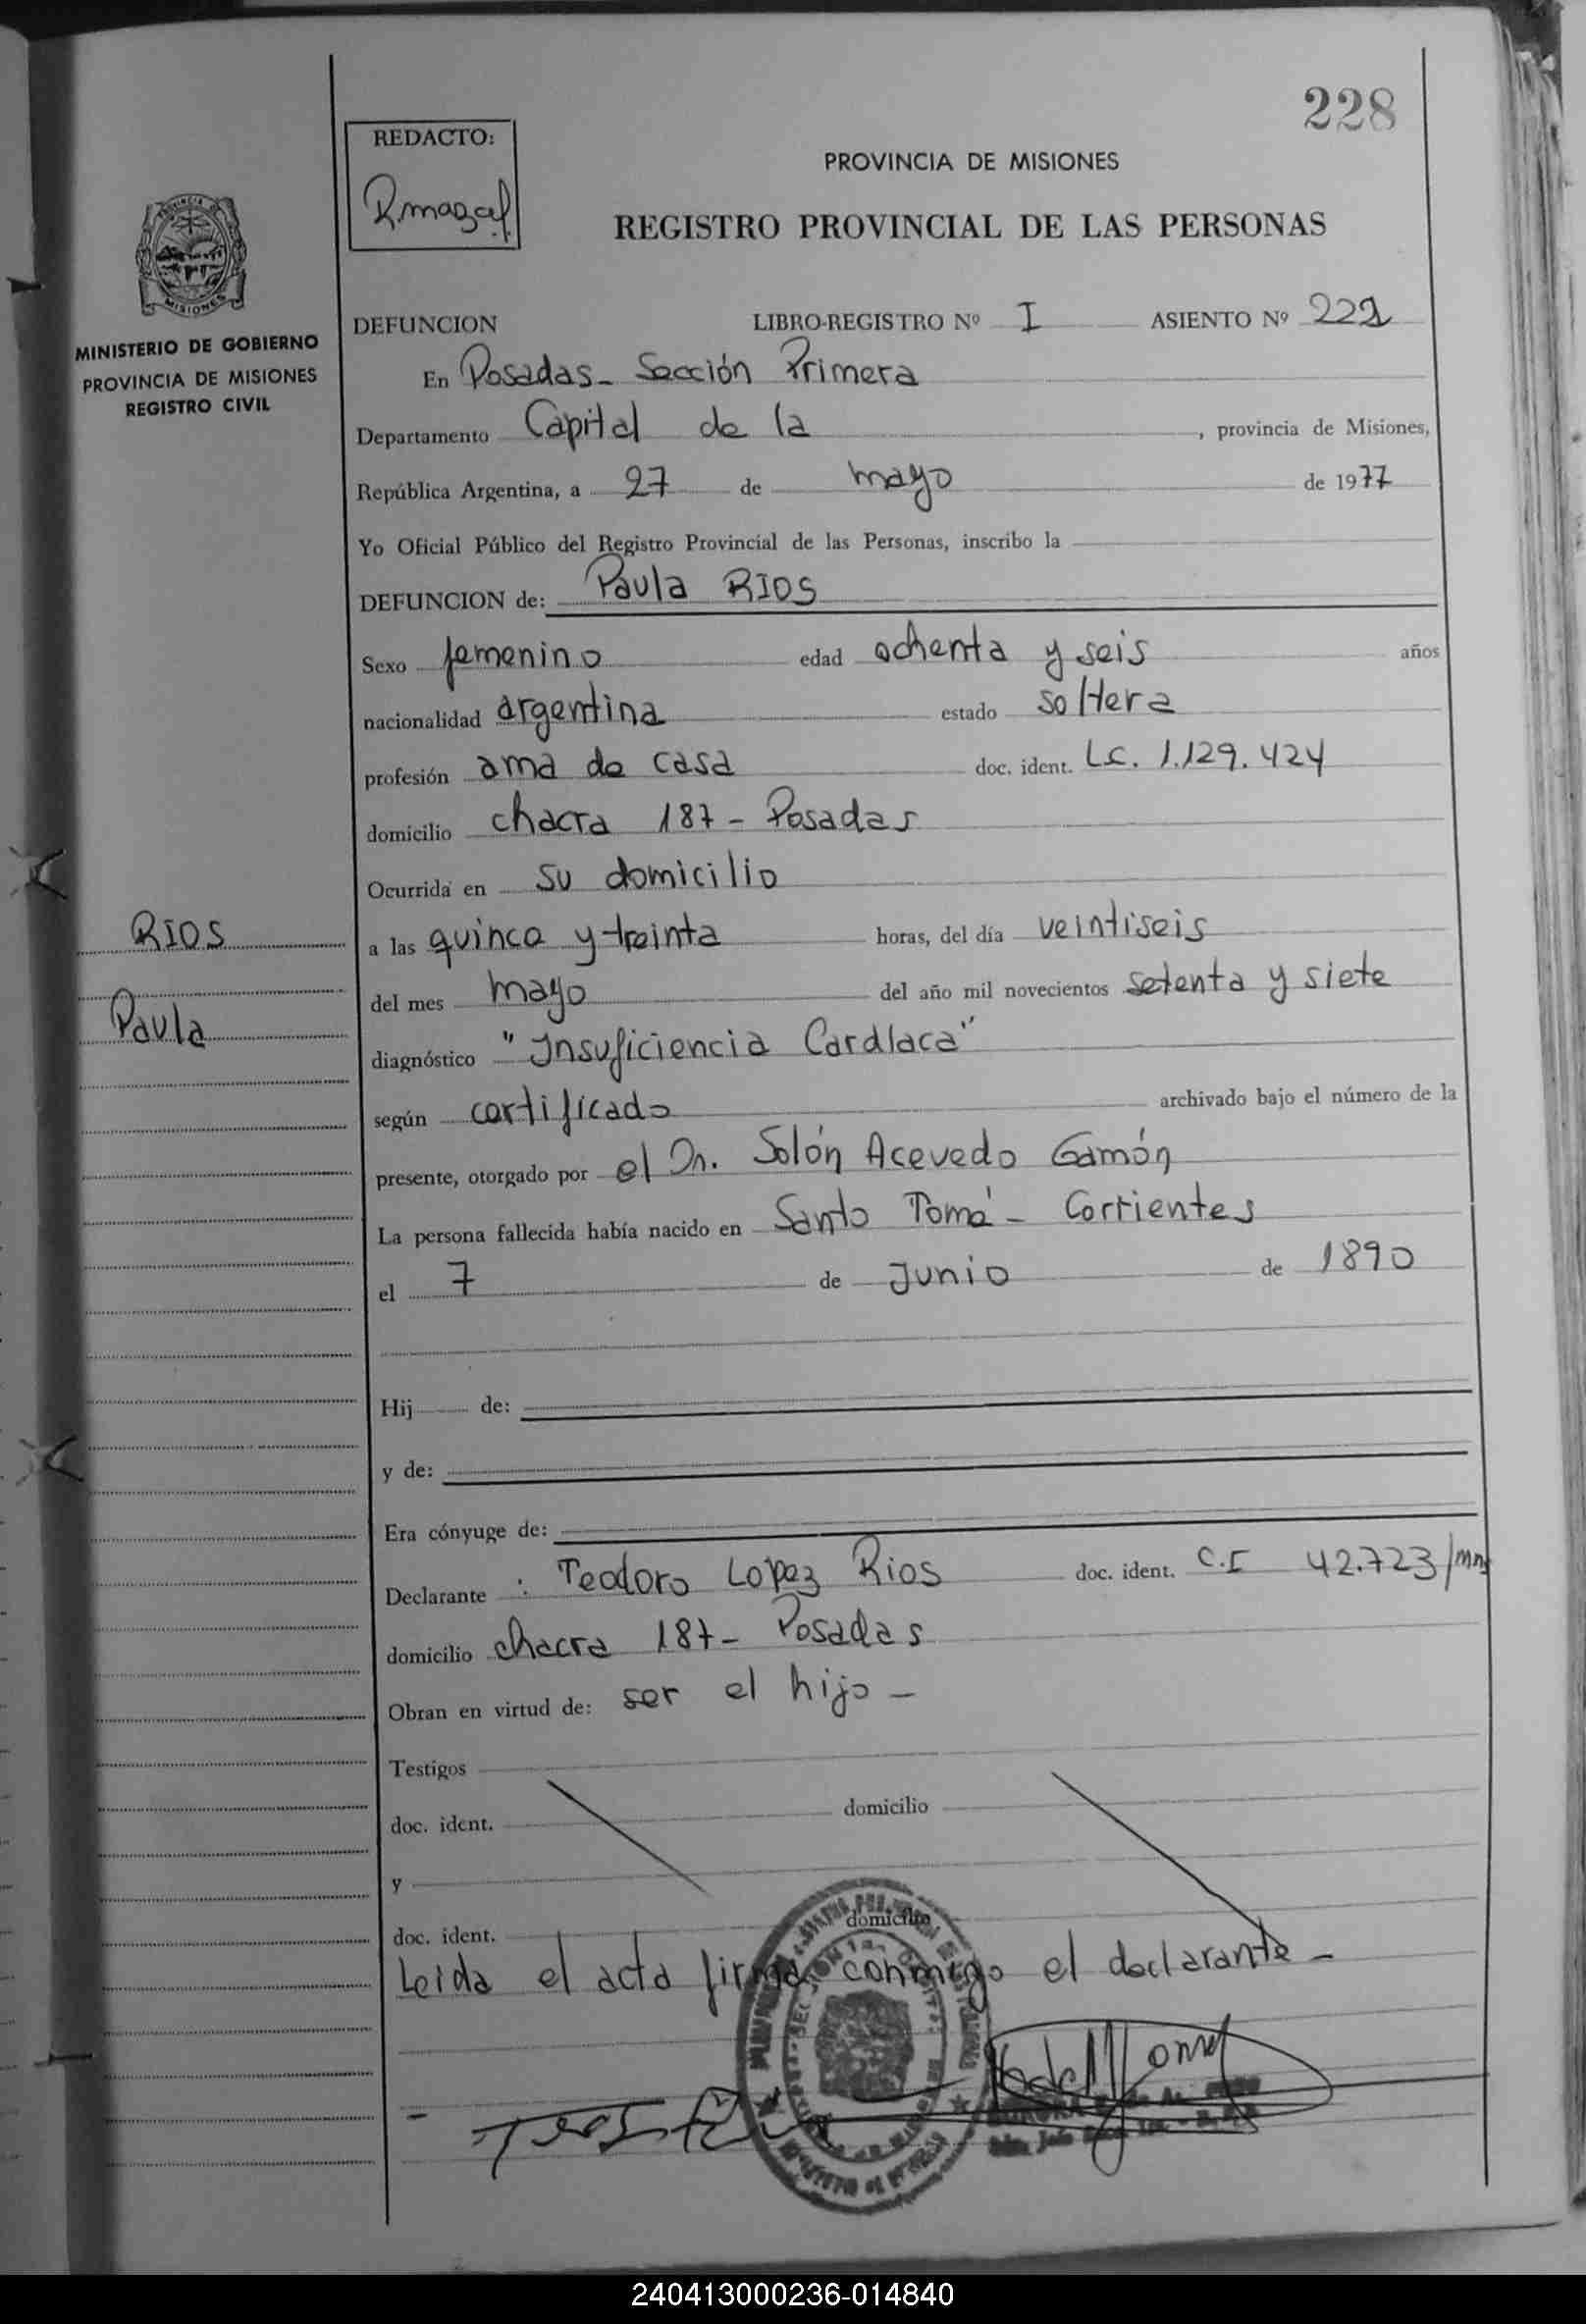 228
REDACTO:
PROVINCIA DE MISIONES
REGISTRO PROVINCIAL DE LAS PERSONAS
MISIONES
MINISTERIO DE GOBIERNO
PROVINCIA DE MISIONES
REGISTRO CIVIL
DEFUNCION LIBRO-REGISTRO Nº I ASIENTO Nº 222
En Posadas - Sección Primera
Departamento Capital de la , provincia de Misiones,
República Argentina, a 27 de mayo de 1977
Yo Oficial Público del Registro Provincial de las Personas, inscribo la
DEFUNCION de: Paula RIOS
Sexo femenino edad ochenta y seis años
nacionalidad argentina estado soltera
profesión ama de casa doc. ident. L.C. 1.129.424
domicilio chacra 187 - Posadas
Ocurrida en su domicilio
RIOS
a las quince y treinta horas, del día veintiseis
del mes mayo del año mil novecientos setenta y siete
Paula
diagnóstico "Insuficiencia Cardíaca"
según certificado archivado bajo el número de la
presente, otorgado por el Dr. Solón Acevedo Gamón
La persona fallecida había nacido en Santo Tomé - Corrientes
el 7 de Junio de 1890
Hij de:
y de:
Era cónyuge de:
Declarante : Teodoro Lopez Rios doc. ident. C.I 42.723/mns
domicilio chacra 187 - Posadas
Obran en virtud de: ser el hijo -
Testigos
doc. ident. domicilio
y
doc. ident. domicilio
Leida el acta firma conmigo el declarante -
240413000236-014840